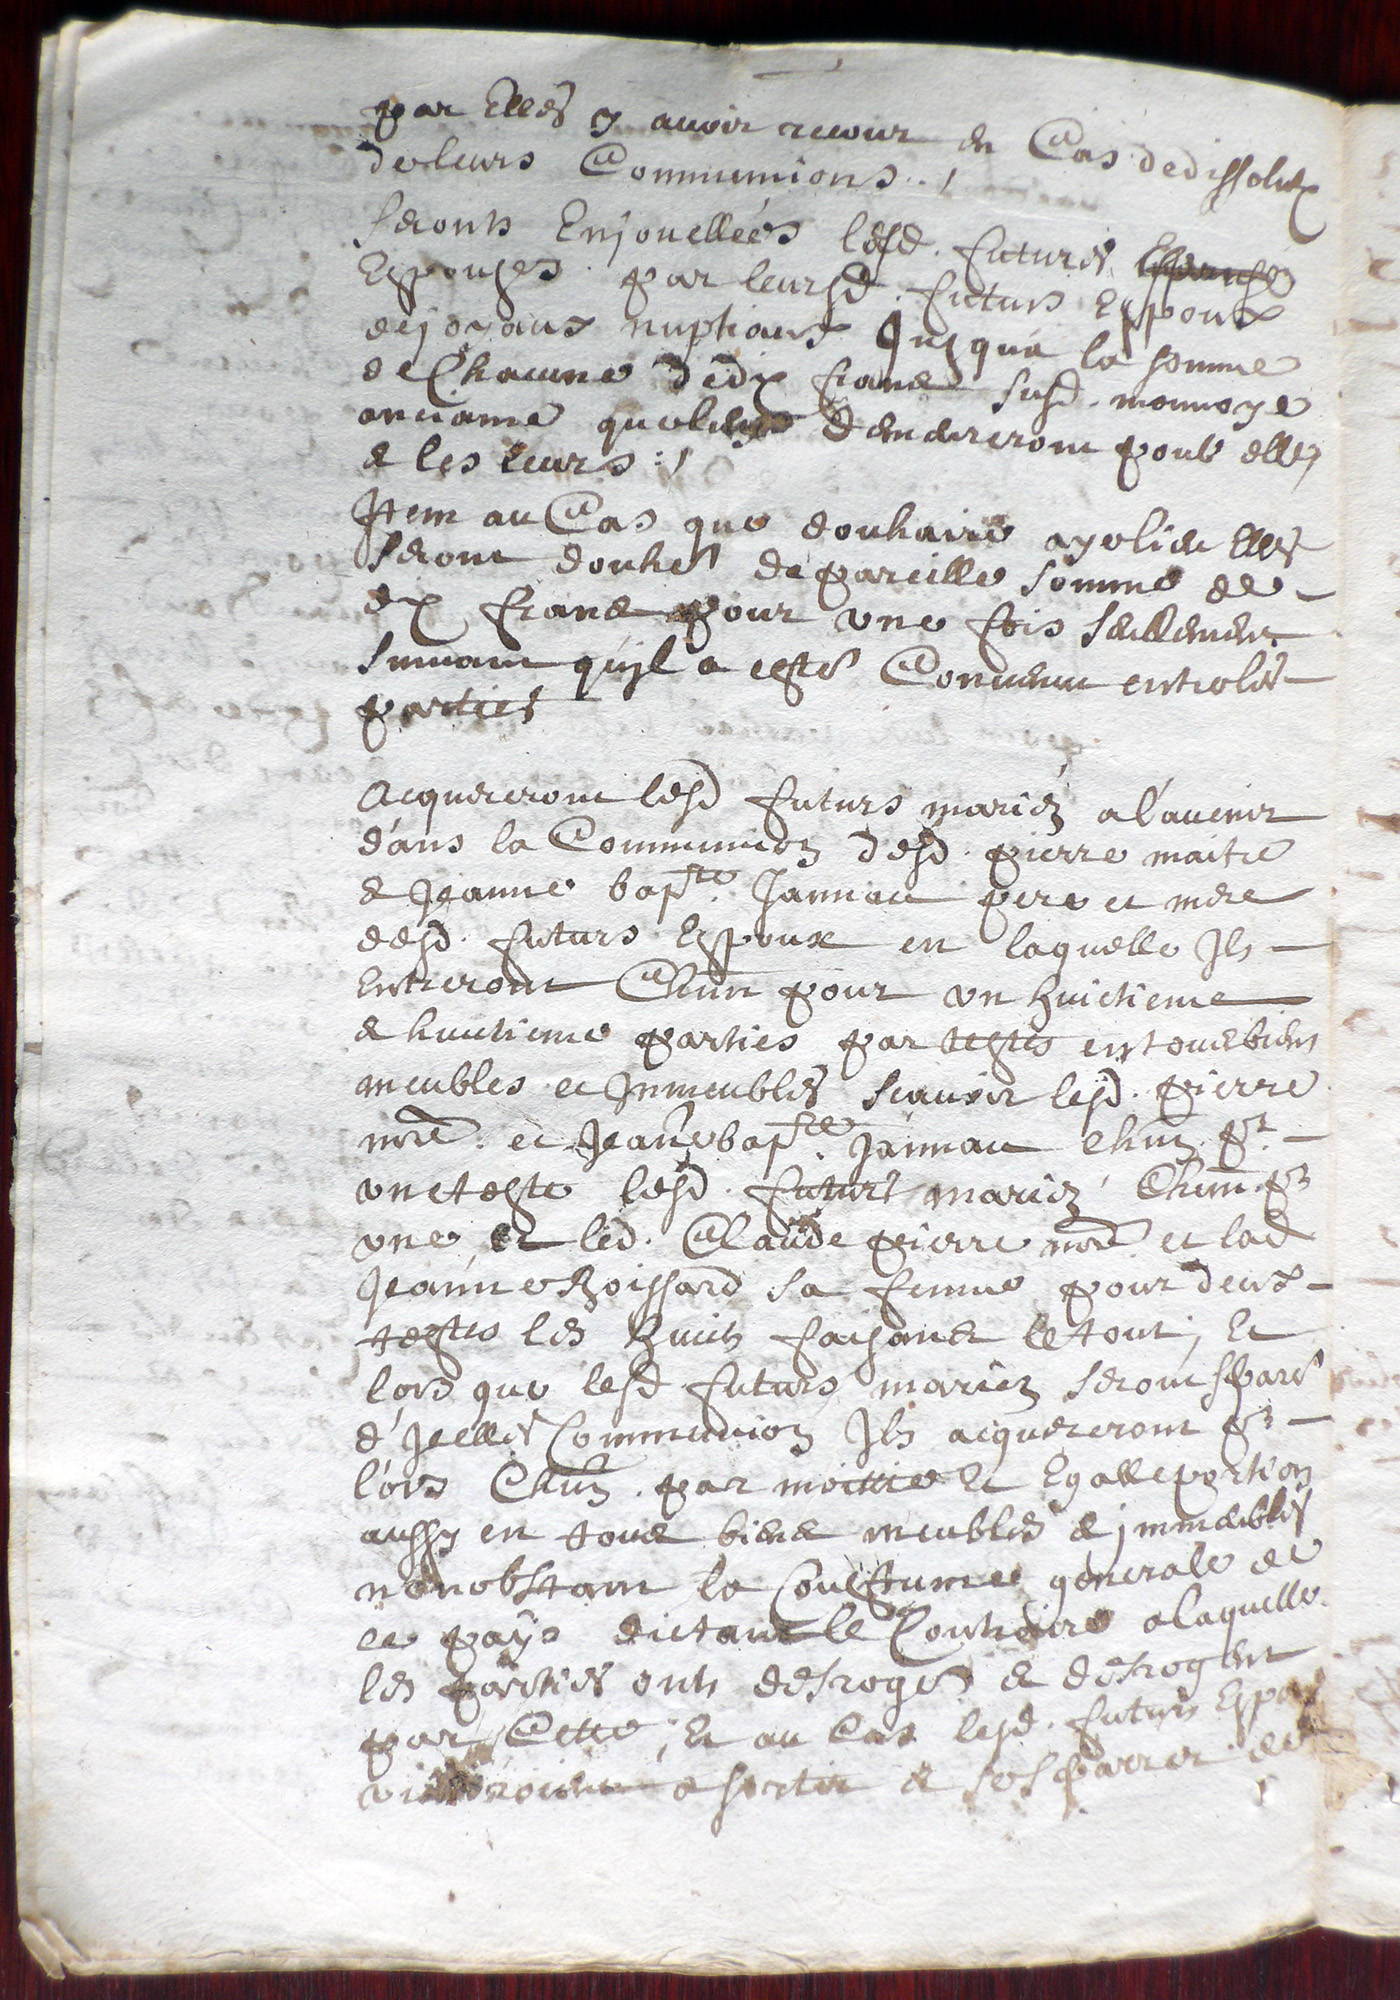 par Elles y avoir recour en Cas de dissolu͠
de leurs Communions . /
Seronts Enjouellées lesd. futures
Espouses par leursd. futurs Espoux
de joyaux nuptiaux Jusqua la somme
de Chacune de dix franc susd. monnoye
anciame quelles demeureront pour elles
& les leurs : /
Jtem au Cas que douhaire aye lieu Elles
Seront douhés de pareille somme de
dix franc pour une fois seullement
suivant quyl a esté Convenu entreles
parties
Acquereront lesd futurs mariez a l'avenir
dans la Communion desd. pierre maitre
& Jeanne bapte. Jannau pere et mere
desd. futurs Espoux en laquelle Jls
Entreront Chun pour un huictieme
& huictieme parties par testes en tous biens
meubles et Jmmeubles scavoir lesd. pierre
mre. et Jeane bapte. Jannau chun pr
une teste lesd. futurs mariez Chun pr
une et led. Claude pierre mre et lad
Jeanne Boissard sa femme pour deux
testes les huict faisans le tout, Et
lors que lesd futurs mariez seront spars
d'Jcelles Communion Jls acquereront pr
lors Chun par moittie Et Egalle portion
aussy en tous biens meubles & jmmeubles
nonobstant la Coustume generale de
ce pays dictant le Contraire a laquelle
les parties onts desrogés & desrogent
par Cette, Et au Cas lesd. futurs Espo
viendroient a sortir & se sparrer de